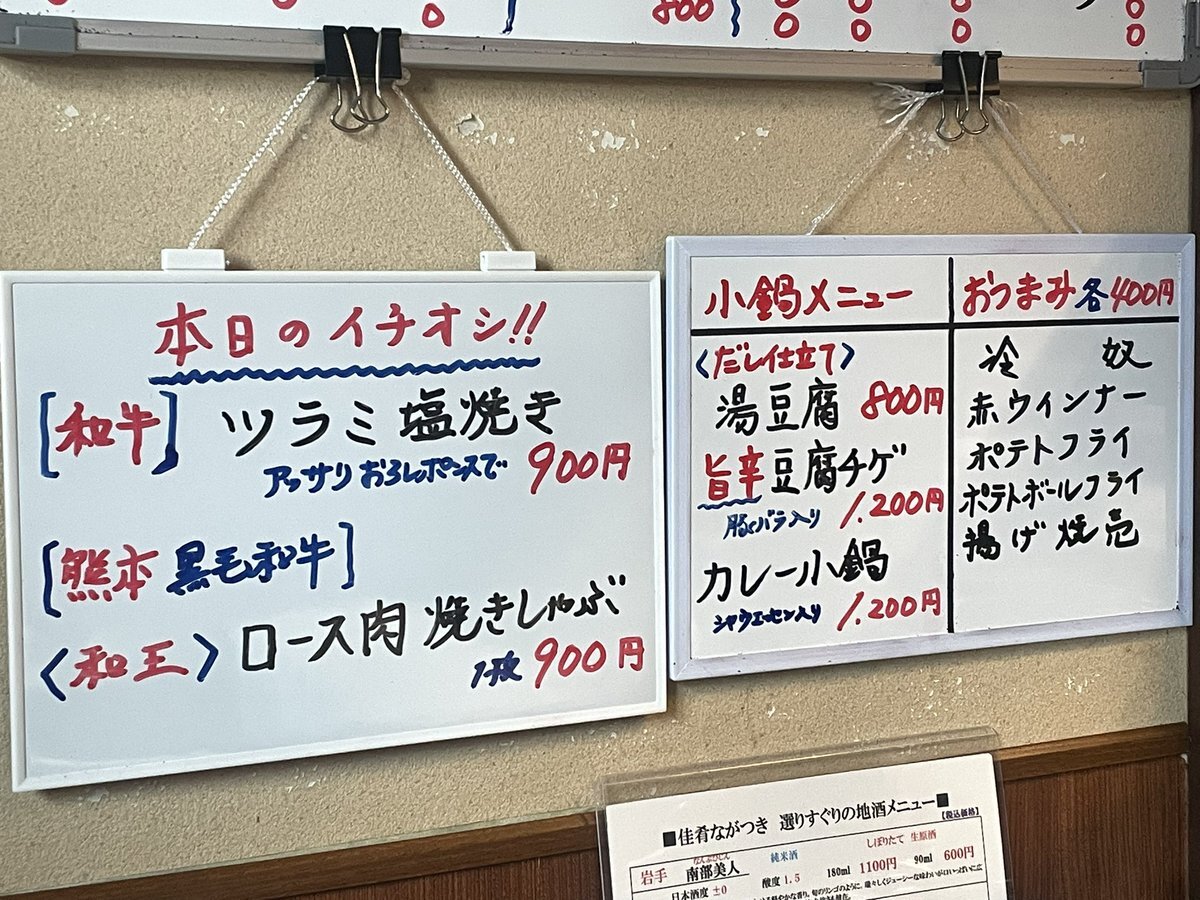 800
本日のイチオシ!!
[和牛] ツラミ塩焼き
アッサリおろしポンスで 900円
[熊本 黒毛和牛]
〈和王〉 ロース肉 焼きしゃぶ
1枚 900円
小鍋メニュー
〈だし仕立て〉
湯豆腐 800円
旨辛豆腐チゲ
豚バラ入り 1.200円
カレー小鍋
シャウエッセン入り 1.200円
おつまみ各400円
冷 奴
赤ウィンナー
ポテトフライ
ポテトボールフライ
揚げ焼売
■佳肴ながつき 選りすぐりの地酒メニュー■
【税込価格】
なんぶびじん
岩手 南部美人 純米酒 しぼりたて 生原酒
日本酒度 ±0 酸度 1.5 180ml 1100円 90ml 600円